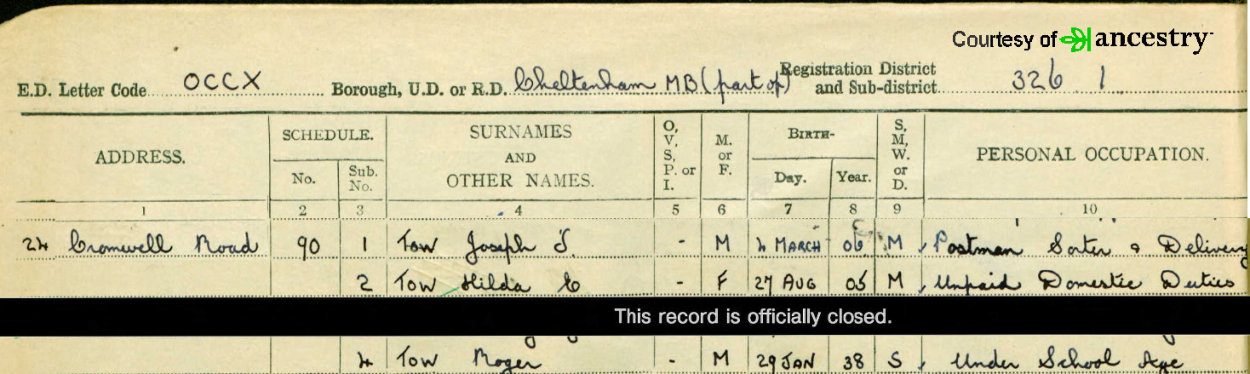 Courtesy of ancestry
E.D. Letter Code OCCX Borough, U.D. or R.D. Cheltenham MB (part of) Registration District and Sub-district 326 1
ADDRESS. SCHEDULE. No. Sub. No. SURNAMES AND OTHER NAMES. O, V, S, P. or I. M. or F. BIRTH- Day. Year. S, M, W. or D. PERSONAL OCCUPATION.
1 2 3 4 5 6 7 8 9 10
24 Cromwell Road 90 1 Tow Joseph S. - M 4 MARCH 06 M Postman Sorter & Delivery
2 Tow Hilda E - F 27 AUG 05 M Unpaid Domestic Duties
This record is officially closed.
4 Tow Roger - M 29 JAN 38 S Under School Age